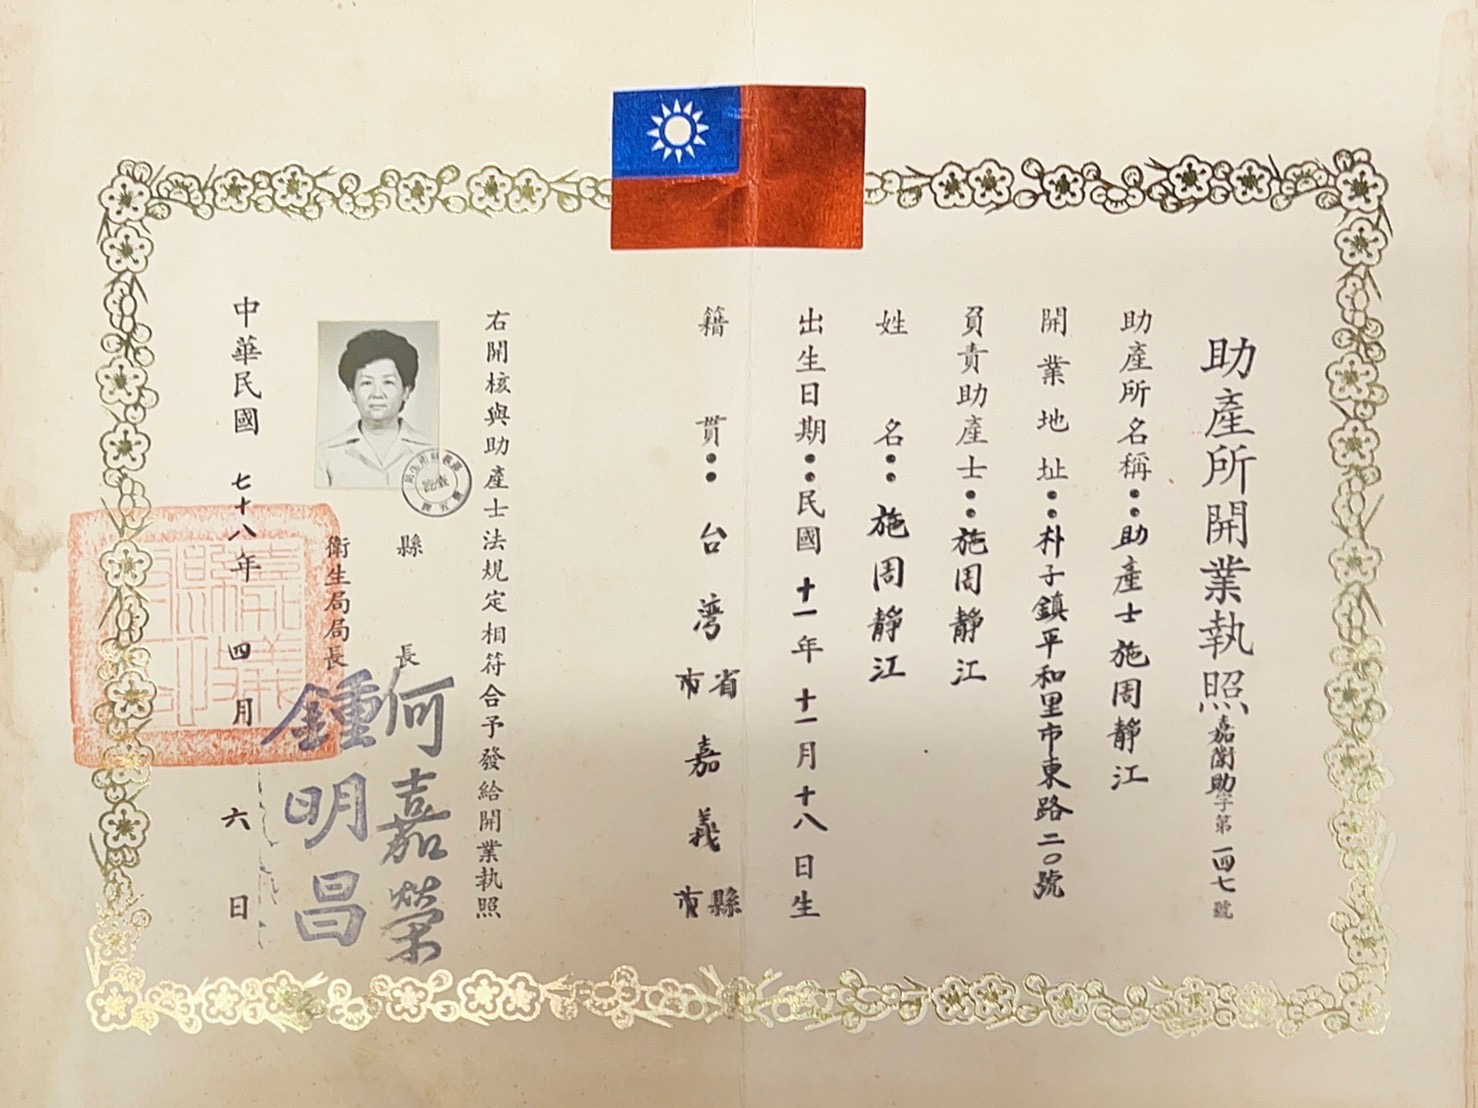 助產所開業執照 嘉衛助字第一四七號
助產所名稱：助產士施周靜江
開業地址：朴子鎮平和里市東路二〇號
負責助產士：施周靜江
姓名：施周靜江
出生日期：民國十一年十一月十八日生
籍貫：台灣省市嘉義縣市
右開核與助產士法規定相符合予發給開業執照
縣長何嘉榮
衛生局局長鍾明昌
中華民國七十八年四月六日